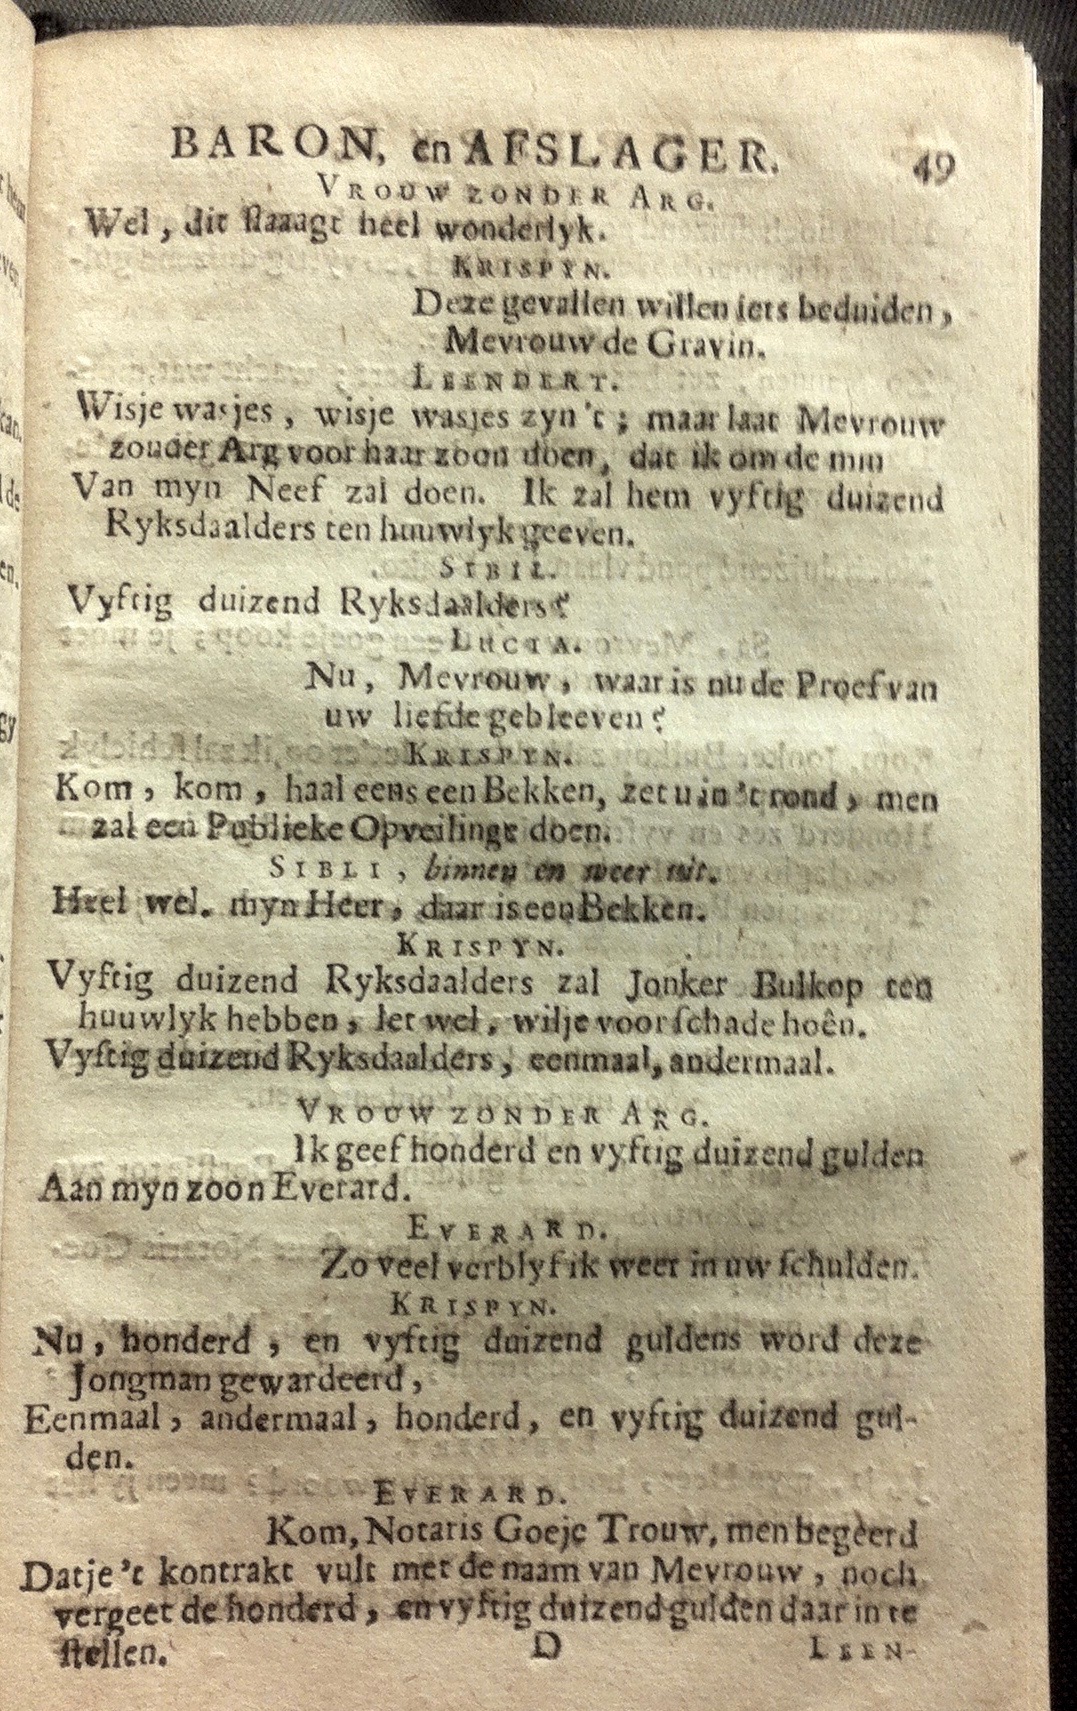 BARON, en AFSLAGER. 49
VROUW ZONDER ARG.
Wel, dit slaaagt heel wonderlyk.
KRISPYN.
Deze gevallen willen iets beduiden,
Mevrouw de Gravin.
LEENDERT.
Wisje wasjes, wisje wasjes zyn 't; maar laat Mevrouw
zonder Arg voor haar zoon doen, dat ik om de min
Van myn Neef zal doen. Ik zal hem vyftig duizend
Ryksdaalders ten huuwlyk geeven.
SIBIL.
Vyftig duizend Ryksdaalders?
LUCIA.
Nu, Mevrouw, waar is nu de Proef van
uw liefde gebleeven?
KRISPYN.
Kom, kom, haal eens een Bekken, zet u in 't rond, men
zal een Publieke Opveilinge doen.
SIBLI, binnen en weer uit.
Heel wel. myn Heer, daar is een Bekken.
KRISPYN.
Vyftig duizend Ryksdaalders zal Jonker Bulkop ten
huuwlyk hebben, let wel, wilje voor schade hoên.
Vyftig duizend Ryksdaalders, eenmaal, andermaal.
VROUW ZONDER ARG.
Ik geef honderd en vyftig duizend gulden
Aan myn zoon Everard.
EVERARD.
Zo veel verblyf ik weer in uw schulden.
KRISPYN.
Nu, honderd, en vyftig duizend guldens word deze
Jongman gewardeerd,
Eenmaal, andermaal, honderd, en vyftig duizend gul-
den.
EVERARD.
Kom, Notaris Goeje Trouw, men begeerd
Datje 't kontrakt vult met de naam van Mevrouw, noch
vergeet de honderd, en vyftig duizend gulden daar in te
stellen. D LEEN-